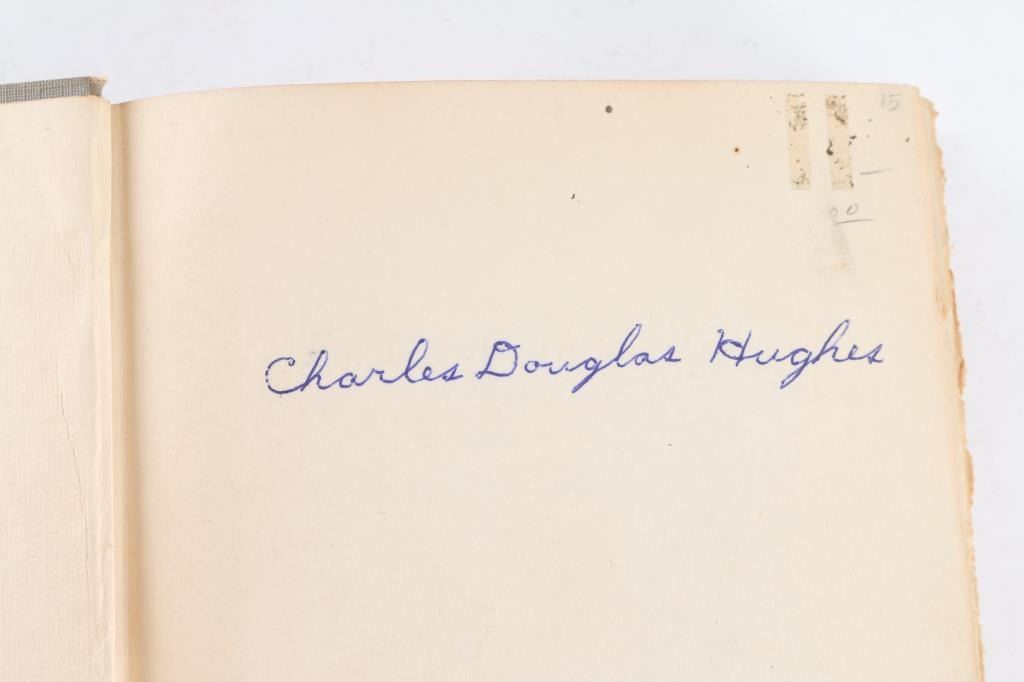 15
00
Charles Douglas Hughes